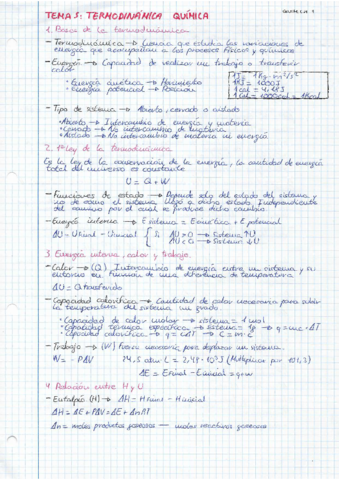 QUÍMICA 1
TEMA 5: TERMODINÁMICA QUÍMICA
1. Bases de la termodinámica
- Termodinámica → Ciencia que estudia las variaciones de
energía que acompañan a los procesos físicos y químicos
- Energía → Capacidad de realizar un trabajo o transferir
calor
· Energía cinética → Movimiento
· Energía potencial → Posición
1J = 1Kg·m²/s²
1KJ = 1000J
1cal = 4,18J
- Tipo de sistema → Abierto, cerrado o aislado
· Abierto → Intercambio de energía y materia
· Cerrado → No intercambio de materia
· Aislado → No intercambio de materia ni energía
2. 1ª Ley de la termodinámica
Es la ley de la conservación de la energía, la cantidad de energía
total del universo es constante
U = Q + W
- Funciones de estado → Depende solo del estado del sistema y
no de como el sistema llegó a dicho estado. Independiente
del camino por el cual se produce dicho cambio
- Energía interna → E sistema = E cinética + E potencial
ΔU = U final - U inicial { Si ΔU > 0 → Sistema ↑U
ΔU < 0 → Sistema ↓U
3. Energía interna, calor y trabajo
- Calor → (Q) Intercambio de energía entre un sistema y su
entorno en función de una diferencia de temperatura
ΔU = Q transferido
- Capacidad calorífica → Cantidad de calor necesaria para subir
la temperatura del sistema un grado
· Capacidad de calor molar → sistema = 1 mol
· Capacidad térmica específica → sistema = 1g → q = m·c·ΔT
· Capacidad calorífica → q = CΔT → C = m·c
- Trabajo → (W) Fuerza necesaria para desplazar un sistema.
W = - PΔV
(Multiplicar por 101,3)
ΔE = E final - E inicial = q + w
4. Relación entre H y U
- Entalpía (H) → ΔH = H final - H inicial
ΔH = ΔE + PΔV = ΔE + ΔnRT
Δn = moles productos gaseosos - moles reactivos gaseosos